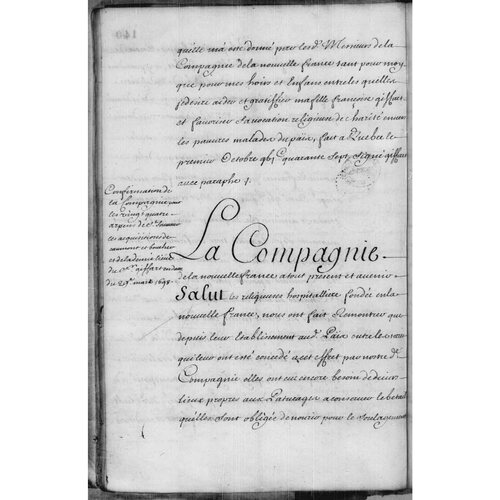 quelle m'a esté donné par lesd. Messieurs de la
Compagnie de la nouvelle france tant pour moy
que pour mes hoirs et Enfans entre lesquelles
je desire aider et gratiffier ma fille françoise giffart
et favoriser sa vocation religieuse de charité envers
les pauvres malades du païs, fait a Quebec le
premier Octobre quarante sept, signé giffart
avec paraphe ;.
Confirmation de
la Compagnie pour
les vingt quatre
arpens de
les acquisitions de
et boucher
et de la demie lieue
du giffart en date
du 29e. mars 1649
La Compagnie
de la nouvelle france a tout present et avenir
Salut les religieuses hospitaliere fondée en la
nouvelle france, nous ont fait Remontrer que
depuis leur Etablissement aud. Païs outre les
qui leur ont esté concedé a cet effect par nostre de.
Compagnie elles ont eu encore besoin de divers
lieux propres aux Paturages a conserver le betail
quelles sont obligée de nourir pour le soulagement